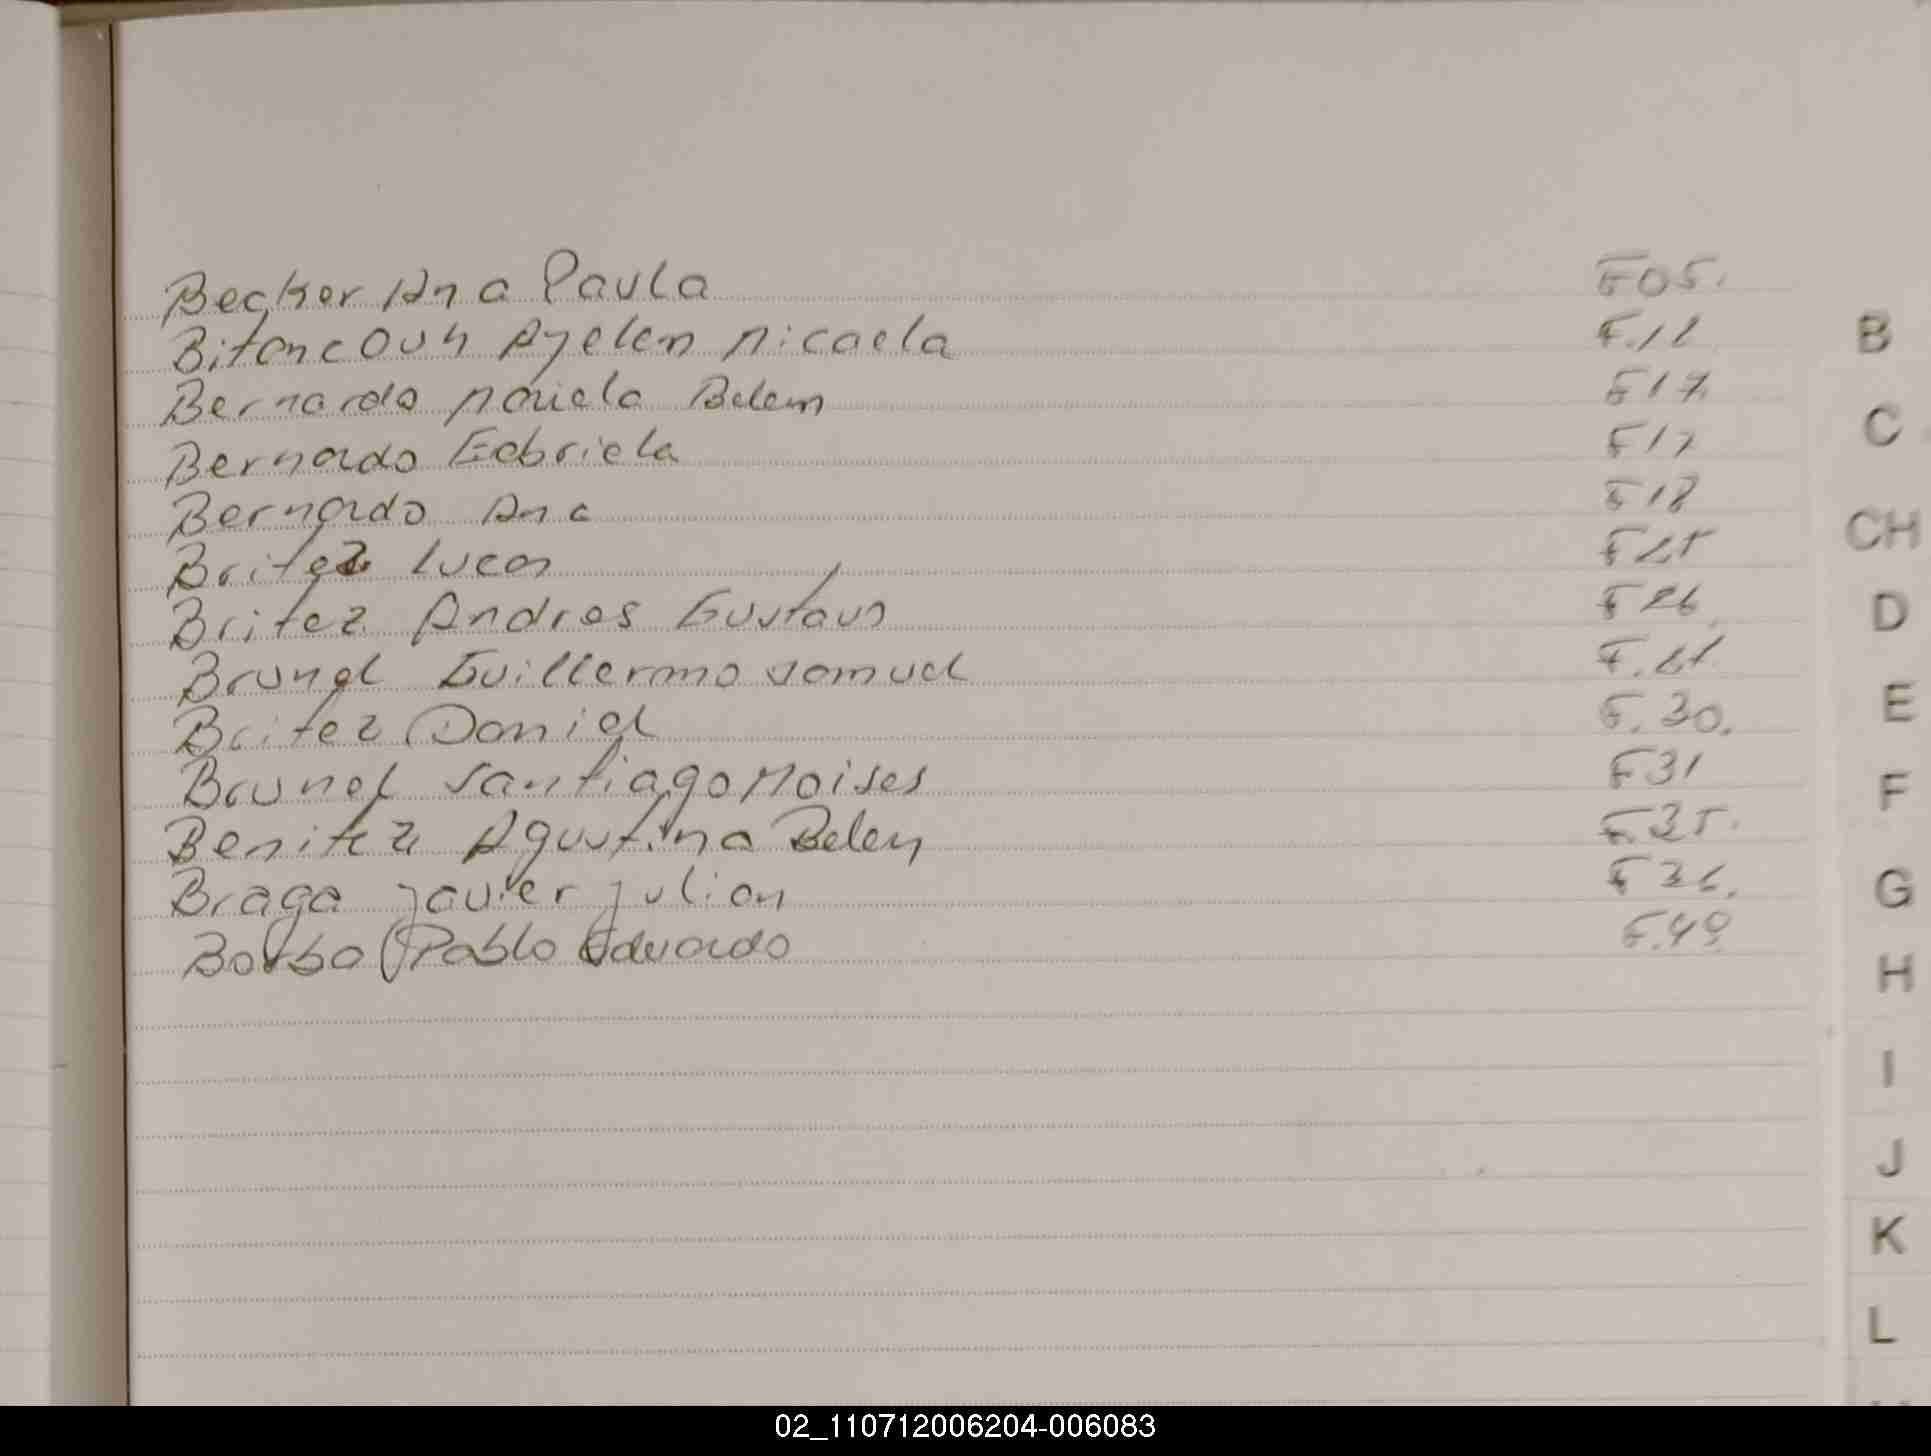 Becker Ana Paula F05.
Bitancourt Ayelen Micaela F.12
Bernardo Mariela Belem F17
Bernardo Gabriela F17
Bernardo Ana F18
Britez Lucas F25
Britez Andres Gustavo F26
Brunel Guillermo Samuel F.27
Britez Daniel F.30.
Brunel Santiago Moises F31
Benitez Agustina Belen F35.
Braga Javier Julian F36.
Borba Pablo Eduardo F.49
B
C
CH
D
E
F
G
H
I
J
K
L
02_110712006204-006083